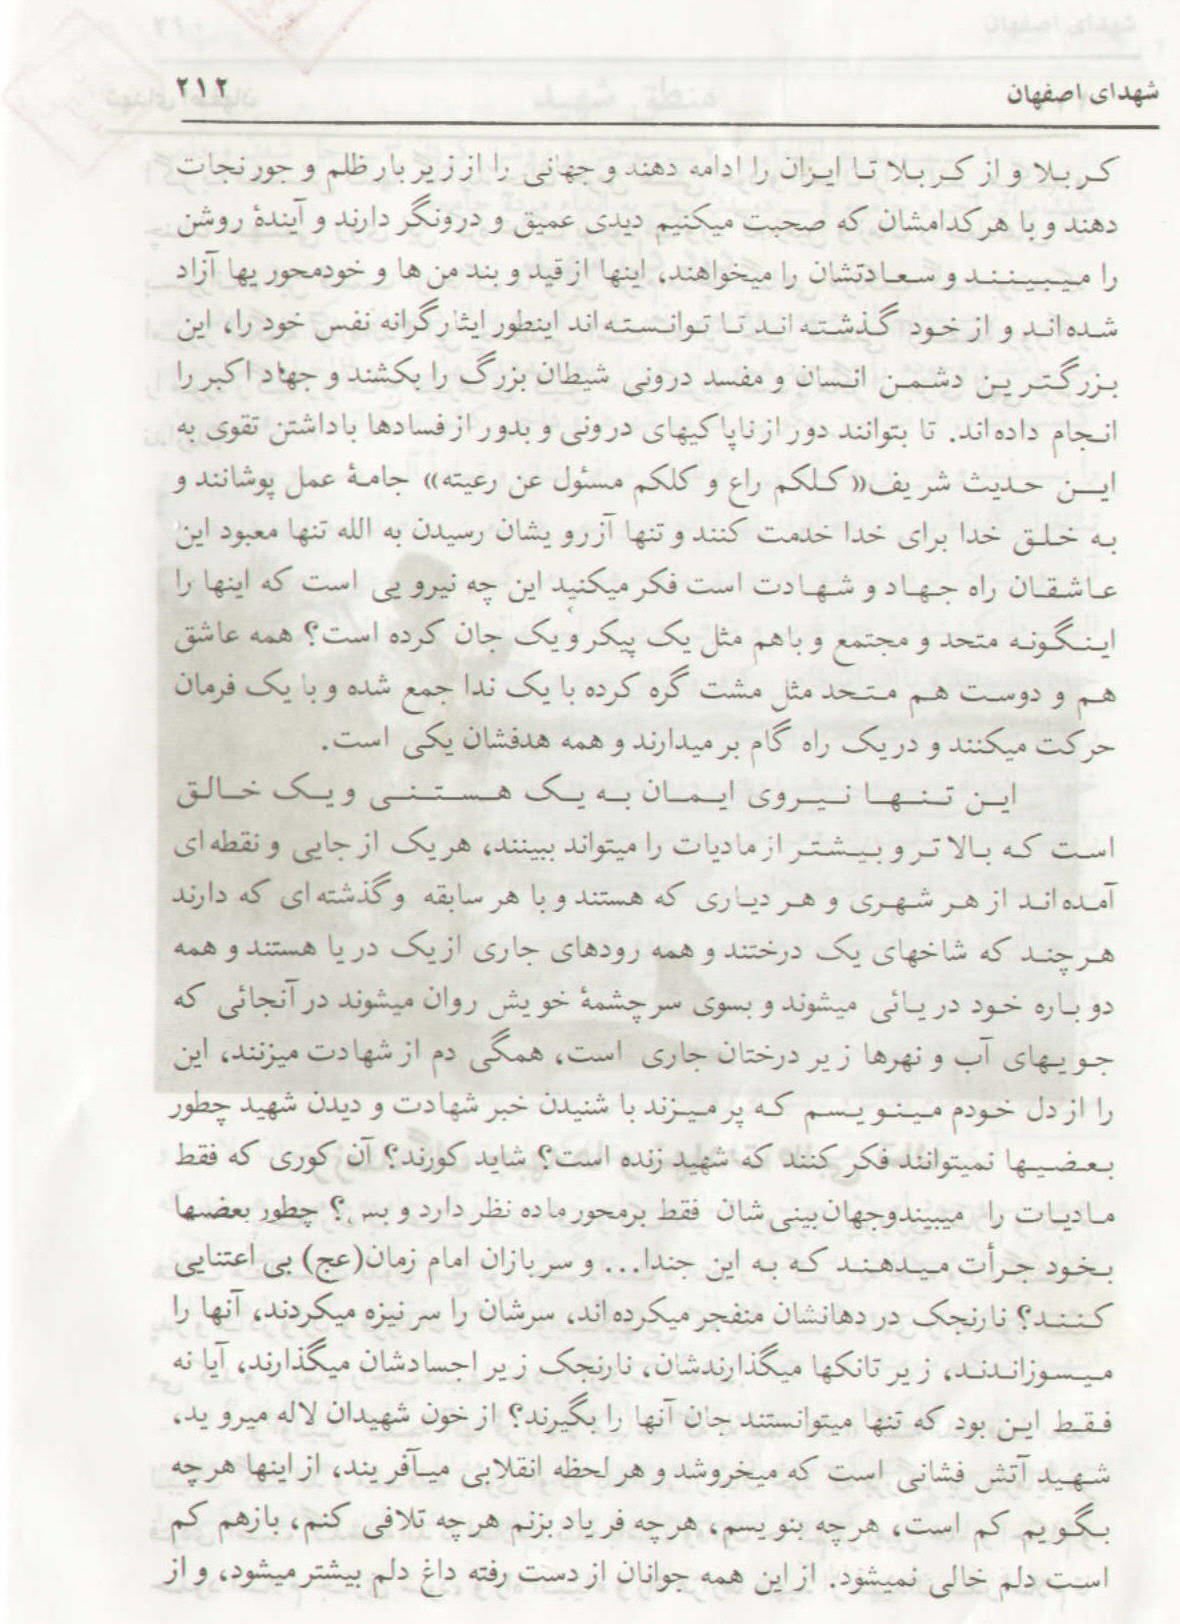 شهدای اصفهان
۲۱۲
کربلا و از کربلا تا ایران را ادامه دهند و جهانی را از زیر بار ظلم و جور نجات
دهند و با هر کدامشان که صحبت میکنیم دیدی عمیق و درونگر دارند و آیندهٔ روشن
را میبینند و سعادتشان را میخواهند، اینها از قید و بند من ها و خودمحوریها آزاد
شده اند و از خود گذشته اند تا توانسته اند اینطور ایثارگرانه نفس خود را، این
بزرگترین دشمن انسان و مفسد درونی شیطان بزرگ را بکشند و جهاد اکبر را
انجام داده اند. تا بتوانند دور از ناپاکیهای درونی و بدور از فسادها باداشتن تقوی به
این حدیث شریف «کلکم راع و کلکم مسئول عن رعیته» جامهٔ عمل پوشانند و
به خلق خدا برای خدا خدمت کنند و تنها آرزویشان رسیدن به الله تنها معبود این
عاشقان راه جهاد و شهادت است فکر میکنید این چه نیرویی است که اینها را
اینگونه متحد و مجتمع و باهم مثل یک پیکر و یک جان کرده است؟ همه عاشق
هم و دوست هم متحد مثل مشت گره کرده با یک ندا جمع شده و با یک فرمان
حرکت میکنند و در یک راه گام بر میدارند و همه هدفشان یکی است.
این تنها نیروی ایمان به یک هستنی و یک خالق
است که بالاتر و بیشتر از مادیات را میتواند ببینند، هر یک از جایی و نقطه ای
آمده اند از هر شهری و هر دیاری که هستند و با هر سابقه وگذشته ای که دارند
هرچند که شاخهای یک درختند و همه رودهای جاری از یک دریا هستند و همه
دوباره خود دریائی میشوند و بسوی سرچشمهٔ خویش روان میشوند در آنجائی که
جویهای آب و نهرها زیر درختان جاری است، همگی دم از شهادت میزنند، این
را از دل خودم مینویسم که پر میزند با شنیدن خبر شهادت و دیدن شهید چطور
بعضیها نمیتوانند فکر کنند که شهید زنده است؟ شاید کورند؟ آن کوری که فقط
مادیات را میبیندوجهان بینی شان فقط برمحور ماده نظر دارد و بس؟ چطور بعضیها
بخود جرأت میدهند که به این جندا... و سربازان امام زمان(عج) بی اعتنایی
کنند؟ نارنجک در دهانشان منفجر میکرده اند، سرشان را سر نیزه میکردند، آنها را
میسوزاندند، زیر تانکها میگذارندشان، نارنجک زیر اجسادشان میگذارند، آیا نه
فقط این بود که تنها میتوانستند جان آنها را بگیرند؟ از خون شهیدان لاله میروید،
شهید آتش فشانی است که میخروشد و هر لحظه انقلابی میآفریند، از اینها هرچه
بگویم کم است، هرچه بنویسم، هرچه فریاد بزنم هرچه تلافی کنم، بازهم کم
است دلم خالی نمیشود. از این همه جوانان از دست رفته داغ دلم بیشتر میشود، و از